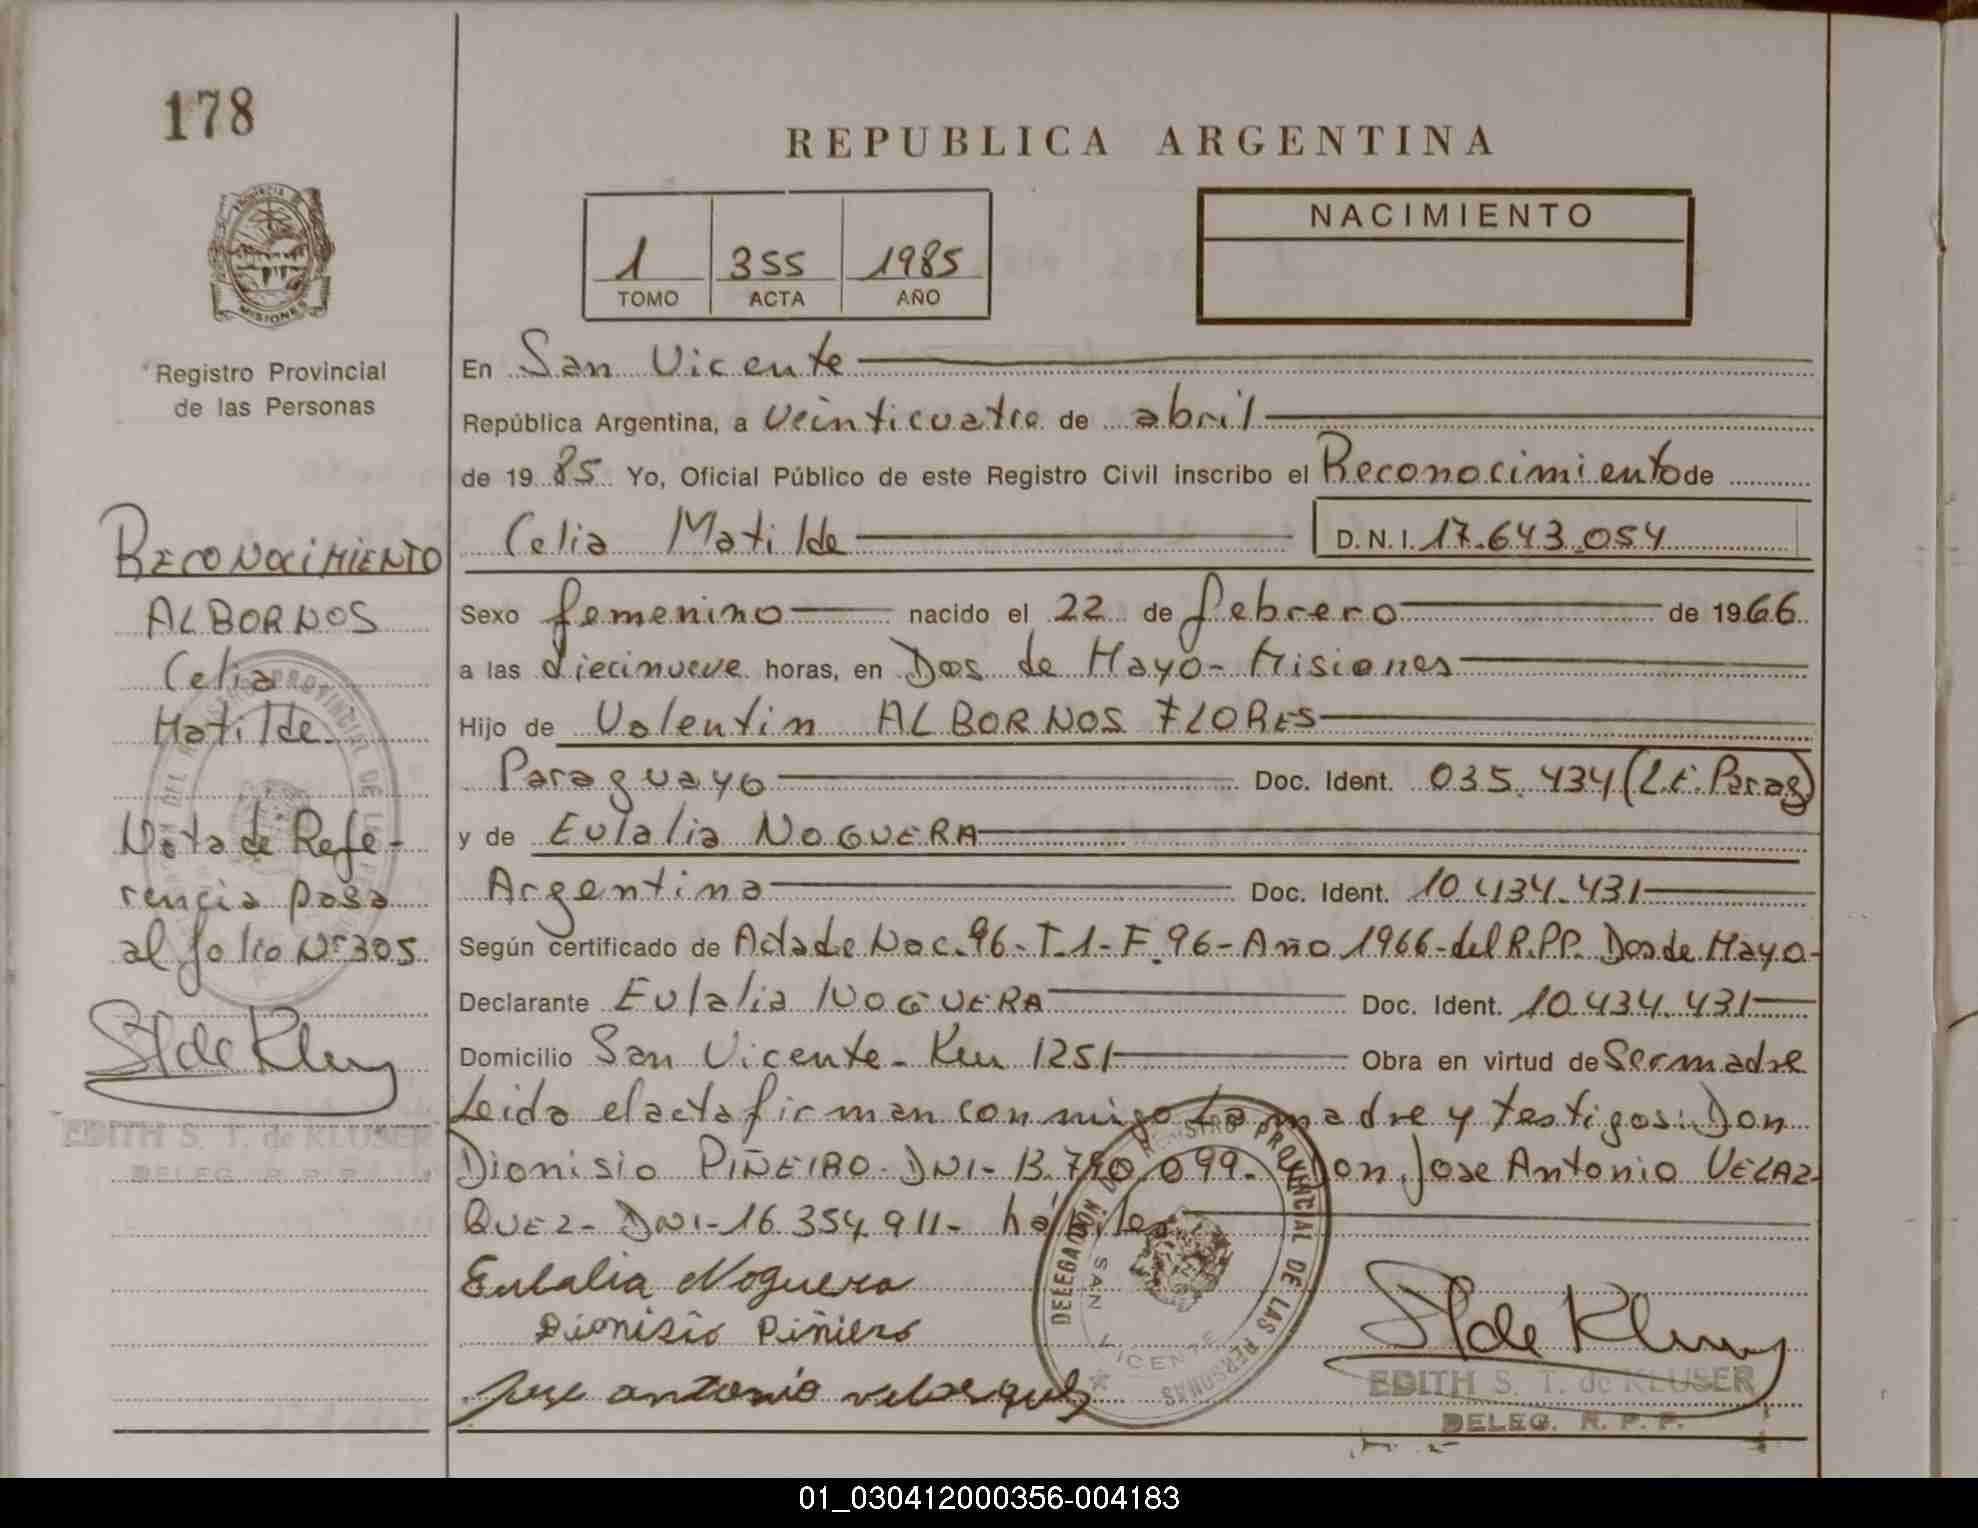 178
REPUBLICA ARGENTINA
PROVINCIA
MISIONES
1 355 1985
TOMO ACTA AÑO
NACIMIENTO
Registro Provincial
de las Personas
En San Vicente
República Argentina, a veinticuatro de abril
de 19 85 Yo, Oficial Público de este Registro Civil inscribo el Reconocimiento de
Celia Matilde D.N.I. 17.643.054
Sexo femenino nacido el 22 de febrero de 1966
a las diecinueve horas, en Dos de Mayo - Misiones
Hijo de Valentin ALBORNOS FLORES
Paraguayo Doc. Ident. 035.434 (L.E. Parag)
y de Eulalia NOGUERA
Argentina Doc. Ident. 10.434.431
Según certificado de Acta de Nac. 96 - T. 1 - F. 96 - Año 1966 - del R.P.P. Dos de Mayo -
Declarante Eulalia NOGUERA Doc. Ident. 10.434.431
Domicilio San Vicente - Km 1251 Obra en virtud de Ser madre
Leida el acta firman conmigo La madre y testigos: Don
Dionisio PIÑEIRO - DNI - 13.790.099 - Don Jose Antonio VELAZ
QUEZ - DNI - 16.354.911 - hábiles
Eulalia Noguera
Dionisio Piñiero
Jose antonio velasquez
DELEGACION DEL REGISTRO PROVINCIAL DE LAS PERSONAS
SAN VICENTE
ST de Kluser
EDITH S. T. de KLUSER
DELEG. R. P. P.
RECONOCIMIENTO
ALBORNOS
Celia
Matilde
Nota de Refe-
rencia pasa
al folio Nº 305
ST de Kluser
EDITH S. T. de KLUSER
DELEG. R. P. P.
01_030412000356-004183